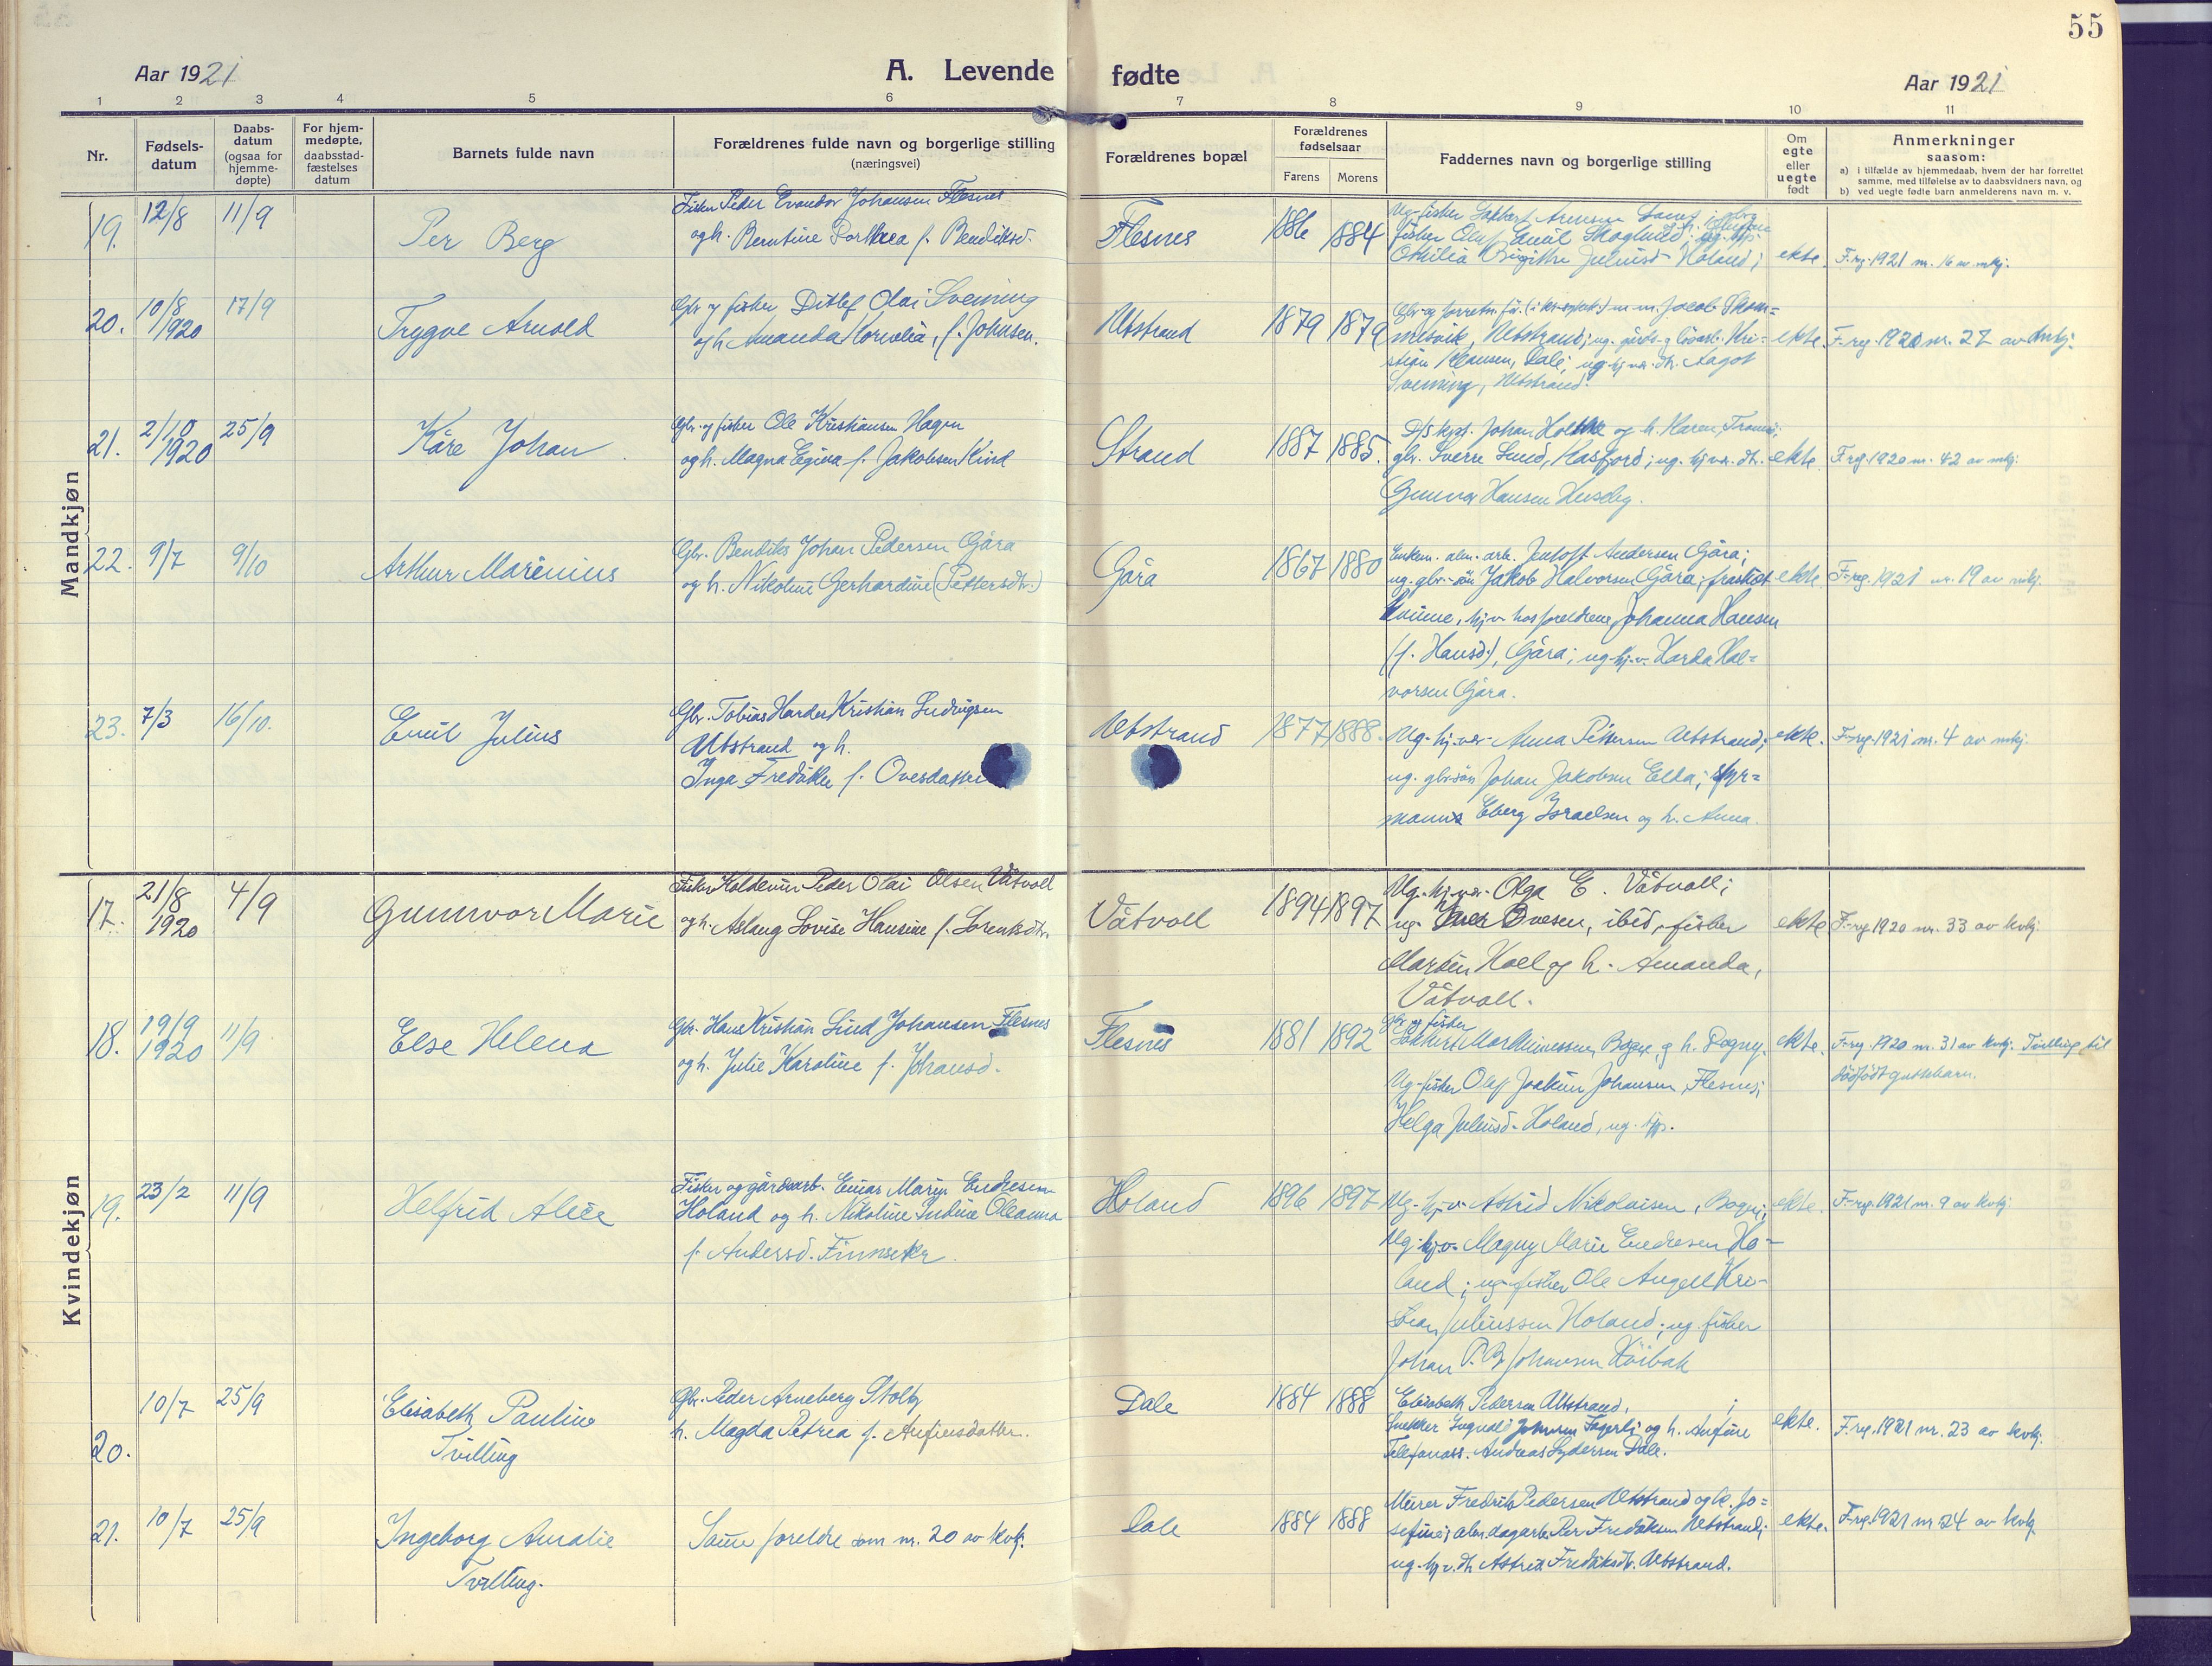 55
Aar 1921
A. Levende fødte
Aar 1921
1 2 3 4 5 6 7 8 9 10 11
Nr.
Fødsels-
datum
Daabs-
datum
(ogsaa for
hjemme-
døpte)
For hjem-
medøpte,
daabsstad-
fæstelses
datum
Barnets fulde navn
Forældrenes fulde navn og borgerlige stilling
(næringsvei)
Forældrenes bopæl
Forældrenes
fødselsaar
Farens Morens
Faddernes navn og borgerlige stilling
Om
egte
eller
uegte
født
Anmerkninger
saasom:
a) i tilfælde av hjemmedaab, hvem der har forrettet
samme, med tilføielse av to daabsvidners navn, og
b) ved uegte fødte barn anmelderens navn m. v.
Mandkjøn
19. 12/8 11/9
Per Berg
Fisker Peder Evandor Johansen Flesnes
og h. Berntine f. Bendiksd.
Flesnes
1886 1884
fisker Oluf Emil Skoglund;
Othilia Birgithe Juliusd. Holand;
ekte.
F.rg. 1921 nr. 16 av mkj.
20. 10/8
1920
17/9
Trygve Arnold
Gbr. og fisker Ditlef Olai Sveining
og h. Amanda Kornelia, f. Johnsen.
Utstrand
1879 1879
Jacob
Utstrand; ug. Kri-
stian Klausen, Dale; ug. hj.v. dtr. Aagot
Sveining, Utstrand.
ekte.
F.reg. 1920 nr. 27 av mkj.
21. 2/10
1920
25/9
Kåre Johan
Gbr. og fisker Ole Kristiansen Hagen
og h. Magna Egina f. Jakobsen Kind
Strand
1887 1885.
D/s kpt. Johan og h. Karen, Tromsø;
gbr. Sverre Lund, Kasfjord; ug. hj.v. dtr.
Gunvor Hansen Husby.
ekte
F.reg. 1920 nr. 42 av mkj.
22. 9/7 9/10
Arthur Marenius
Gbr. Bendiks Johan Pedersen Gåra
og h. Nikoline Gerhardine (Pettersdtr.)
Gåra
1867 1880
Enkem. alm. arb. Jentoft Andersen Gåra;
ug. gbr.-søn Jakob Halvorsen Gåra; fraskilt
kvinne, hj.v. hos foreldrene, Johanna Hansen
(f. Hansd.), Gåra; ug. hj.v. Harda Hal-
vorsen Gåra.
ekte.
F.reg. 1921 nr. 19 av mkj.
23. 7/3 16/10.
Emil Julius
Gbr. Tobias Harder Kristian Ludvigsen
Utstrand og h.
Inga Fredrikke f. Ovesdatter
Utstrand
1877 1888.
Ug. hj.v. Anna Pettersen Utstrand;
ug. gbr.søn Johan Jakobsen Elda; styr-
mann Eberg Israelsen og h. Anna.
ekte.
F.reg. 1921 nr. 4 av mkj.
Kvindekjøn
17. 21/8
1920
4/9
Gunnvor Marie
Fisker Koldevin Peder Olai Olsen Våtvoll
og h. Aslaug Lovise Hansine f. Lorentsdtr.
Våtvoll
1894 1897
Ug. hj.v. Olga E. Våtvoll;
ug. Ovesen, ibid, fisker
Martin Hoel og h. Amanda,
Våtvoll.
ekte
F.reg. 1920 nr. 33 av kvkj.
18. 19/9
1920
11/9
Else Helena
Gbr. Hans Kristian Lind Johansen Flesnes
og h. Julie Karoline f. Johansd.
Flesnes
1881 1892
Gbr. og fisker
og h. Dagny.
Ug. fisker Olaf Joakim Johansen, Flesnes;
Helga Juliusd. Holand, ug. tjp.
ekte.
F.reg. 1920 nr. 31 av kvkj. Tvilling til
dødfødt guttebarn.
19. 23/2 11/9
Helfrid Alice
Fisker og gårdsarb. Einar Marius Endresen
Holand og h. Nikoline Indine Oleanna
f. Andersd. Finnseter.
Holand
1896 1897
Ug. hj.v. Astrid Nikolaisen,
Ug. hj.v. Magny Marie Endresen Ho-
land; ug. fisker Ole Angell Kri-
stian Juliussen Holand; ug. fisker
Johan P. B. Johansen Köibak
ekte.
F.reg. 1921 nr. 9 av kvkj.
20. 10/7 25/9
Elisabeth Pauline
Tvilling
Gbr. Peder Arneberg Stolt og
h. Magda Petrea f. Anfinsdatter.
Dale
1884 1888
Elisabeth Pedersen Utstrand,
Snekker Johnsen Fagerli og h. Anfine
Telefonass. Andreas Lydersen Dale.
ekte.
F.reg. 1921 nr. 23 av kvkj.
21. 10/7 25/9
Ingeborg Amalie
Tvilling.
Same foreldre som nr. 20 av kvkj.
Dale
1884 1888
Murer Fredrik Pedersen Utstrand og h. Jo-
sefine; alm. dagarb. Per Fredriksen Utstrand;
ug. hj.v. dtr. Astrid Fredriksdtr. Utstrand.
ekte.
F.reg. 1921 nr 24 av kvkj.